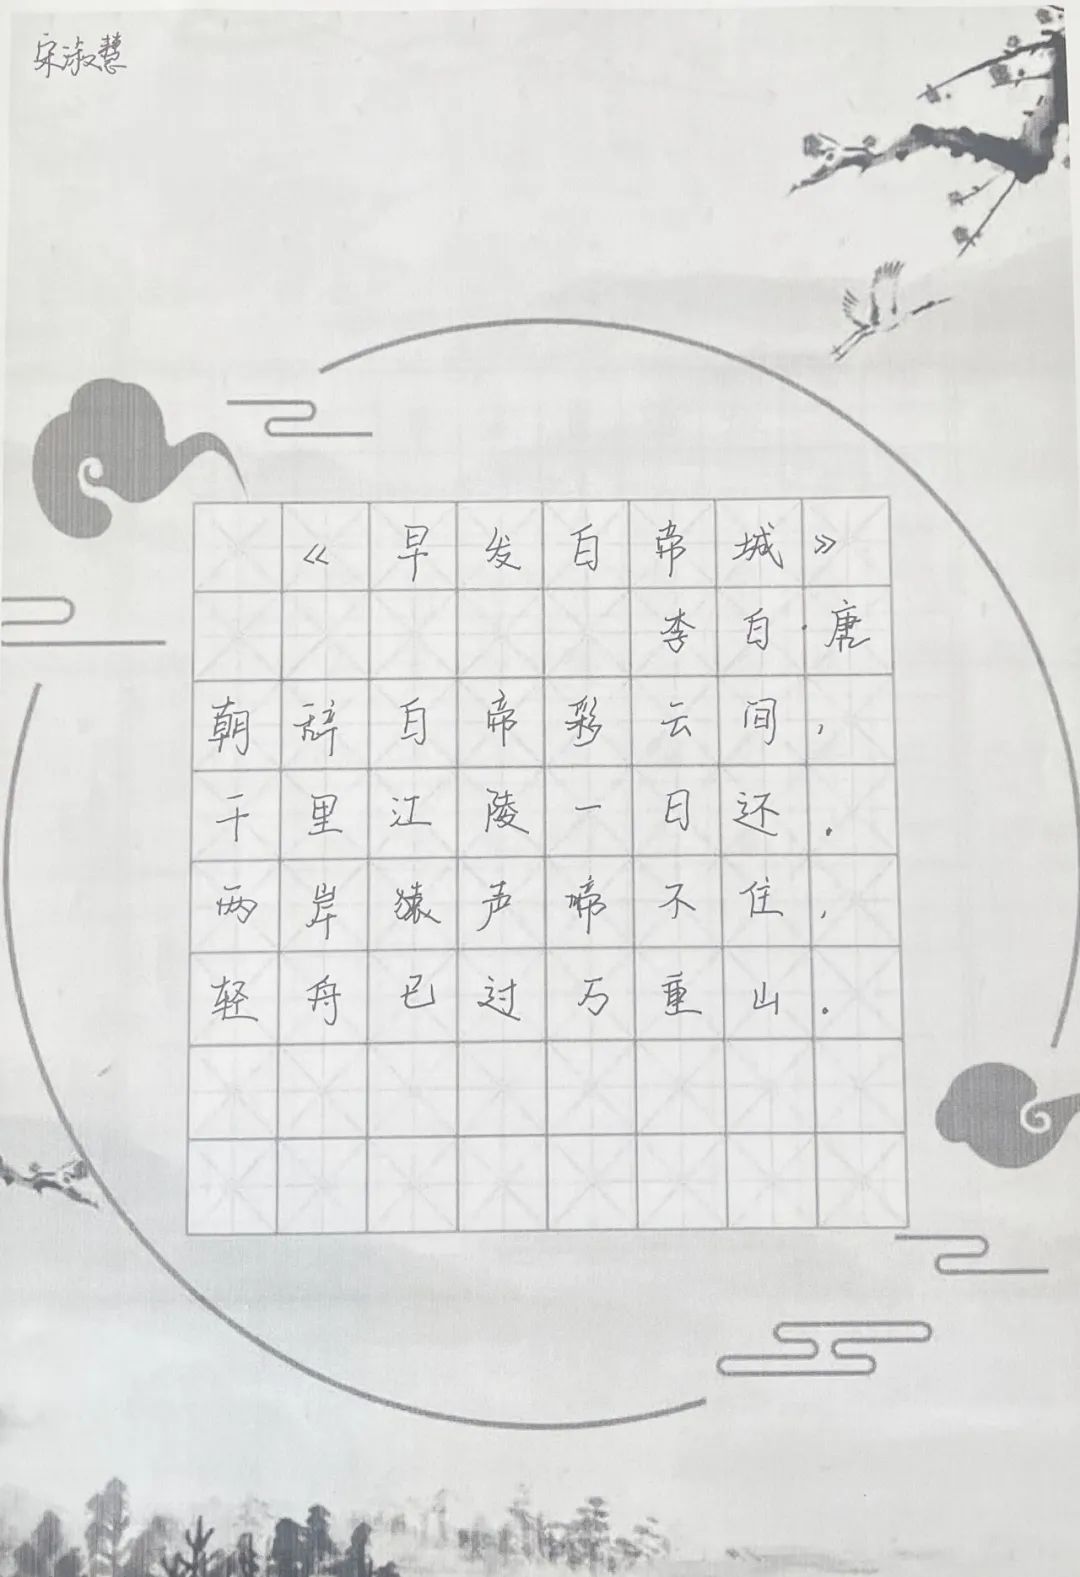 宋淑慧
《早发白帝城》
李白·唐
朝辞白帝彩云间，
千里江陵一日还.
两岸猿声啼不住，
轻舟已过万重山.